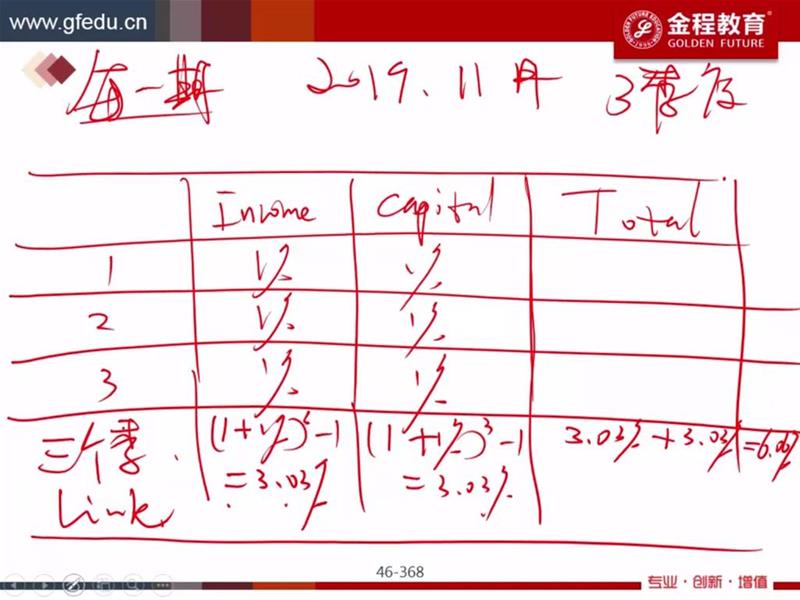 www.gfedu.cn
金程教育
GOLDEN FUTURE
每一期 2019.11月 3季度
Income Capital Total
1 1% 1%
2 1% 1%
3 1% 1%
三个季 (1+1%)³-1 (1+1%)³-1 3.03%+3.03%=6.06%
Link =3.03% =3.03%
46-368
专业·创新·增值